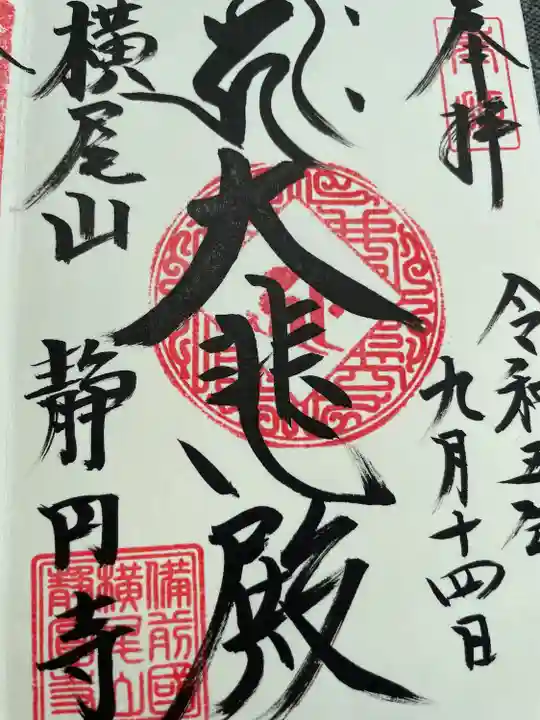 奉拝
令和五年
九月十四日
大悲殿
横尾山 静円寺
備前國
横尾山
静圓寺